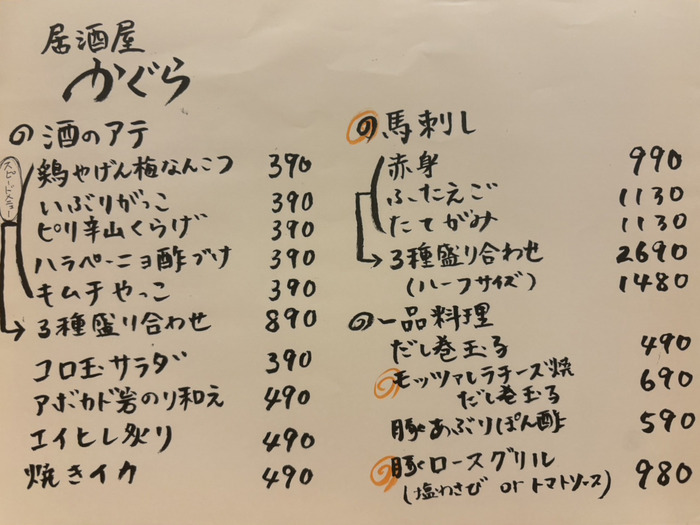 居酒屋
かぐら
酒のアテ
スピードメニュー
鶏やげん梅なんこつ 390
いぶりがっこ 390
ピリ辛山くらげ 390
ハラペーニョ酢づけ 390
キムチやっこ 390
3種盛り合わせ 890
コロ玉サラダ 390
アボカド岩のり和え 490
エイヒレ炙り 490
焼きイカ 490
馬刺し
赤身 990
ふたえご 1130
たてがみ 1130
3種盛り合わせ 2690
(ハーフサイズ) 1480
一品料理
だし巻玉子 490
モッツァレラチーズ焼 690
だし巻玉子
豚あぶりぽん酢 590
豚ロースグリル 980
(塩わさび or トマトソース)